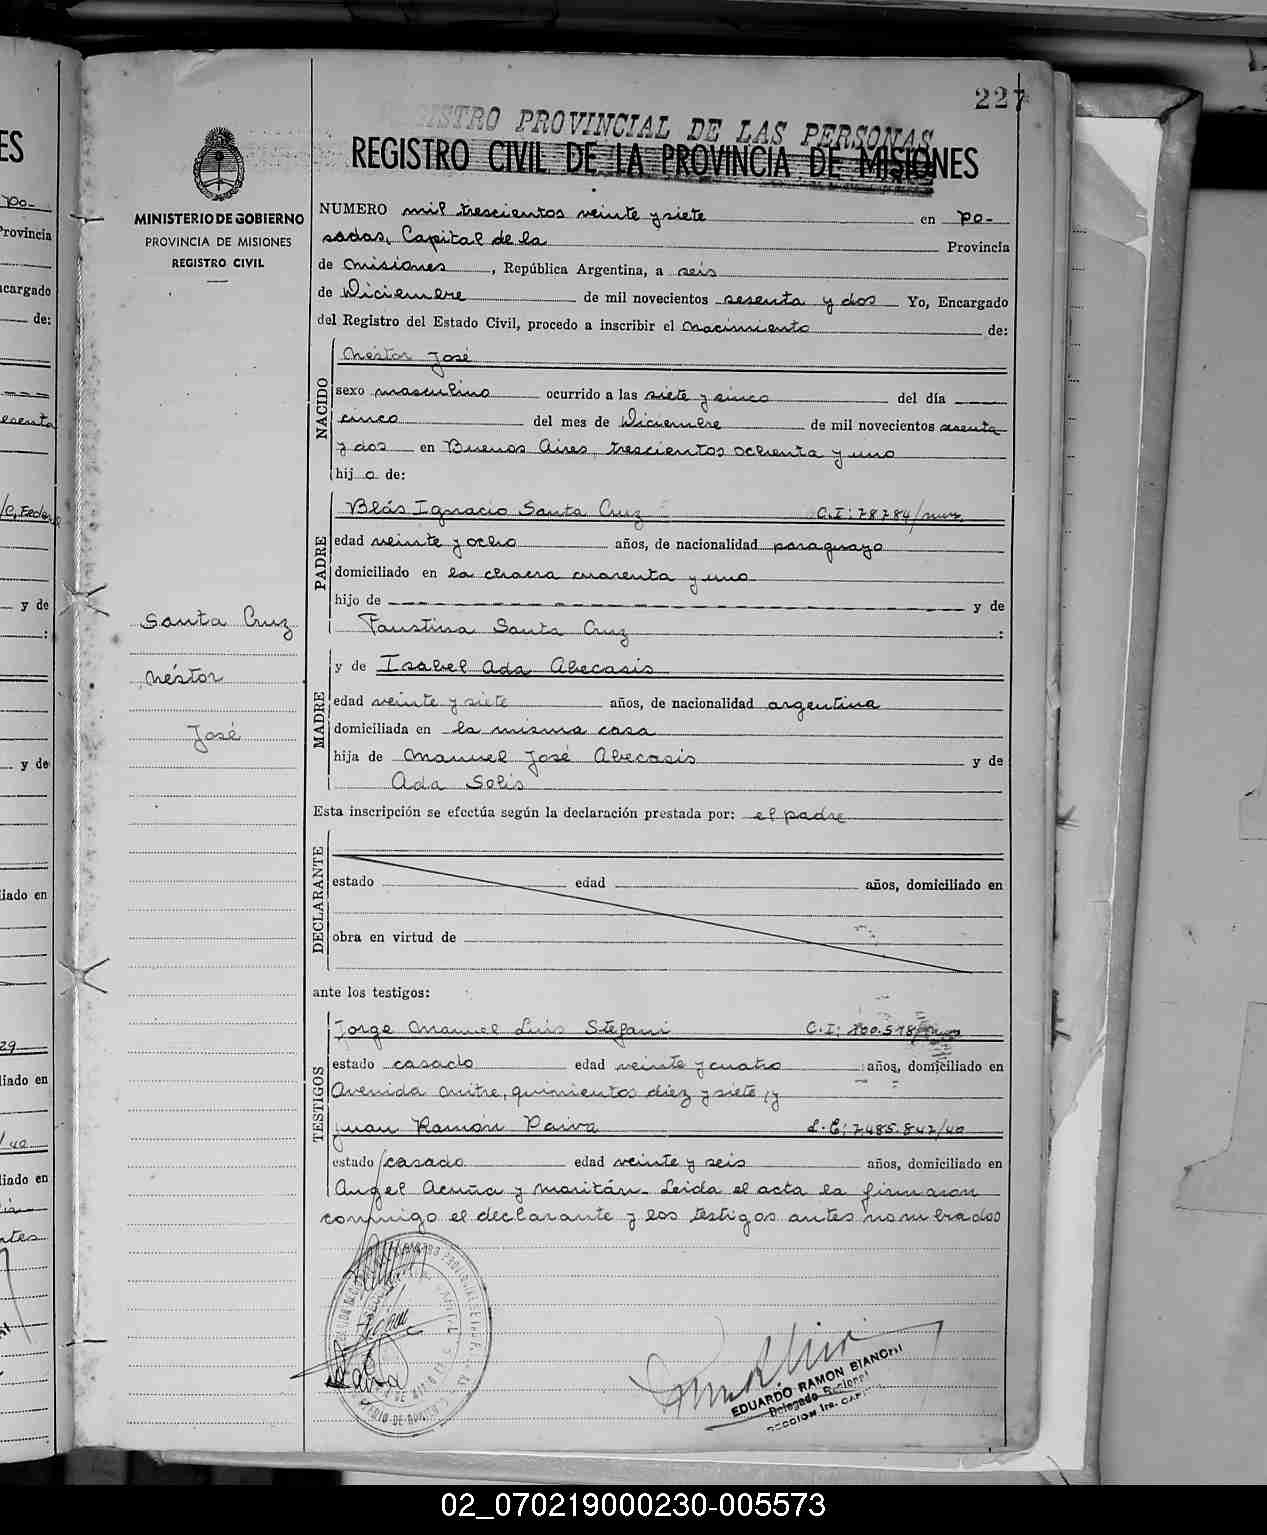 227
REGISTRO PROVINCIAL DE LAS PERSONAS
REGISTRO CIVIL DE LA PROVINCIA DE MISIONES
MINISTERIO DE GOBIERNO
PROVINCIA DE MISIONES
REGISTRO CIVIL
Santa Cruz
Néstor
José
NUMERO mil trescientos veinte y siete en Po-
sadas, Capital de la Provincia
de Misiones, República Argentina, a seis
de Diciembre de mil novecientos sesenta y dos Yo, Encargado
del Registro del Estado Civil, procedo a inscribir el nacimiento de:
NACIDO
Néstor José
sexo masculino ocurrido a las siete y cinco del día
cinco del mes de Diciembre de mil novecientos sesenta
y dos en Buenos Aires, trescientos ochenta y uno
hij o de:
PADRE
Blás Ignacio Santa Cruz C.I: 78784/
edad veinte y ocho años, de nacionalidad paraguayo
domiciliado en la chacra cuarenta y uno
hijo de y de
Faustina Santa Cruz :
MADRE
y de Isabel Ada Abecasis
edad veinte y siete años, de nacionalidad argentina
domiciliada en la misma casa
hija de Manuel José Abecasis y de
Ada Solis
Esta inscripción se efectúa según la declaración prestada por: el padre
DECLARANTE
estado edad años, domiciliado en
obra en virtud de
ante los testigos:
TESTIGOS
Jorge Manuel Luis Stefani C.I:
estado casado edad veinte y cuatro años, domiciliado en
Avenida Mitre, quinientos diez y siete, y
Juan Ramón Paiva L.E; 7.485.842/40
estado casado edad veinte y seis años, domiciliado en
Angel Acuña y Maritán. Leida el acta la firmaron
conmigo el declarante y los testigos antes nombrados
EDUARDO RAMON BIANCHI
Delegado Seccional
SECCION 1ra. CAPITAL
02_070219000230-005573